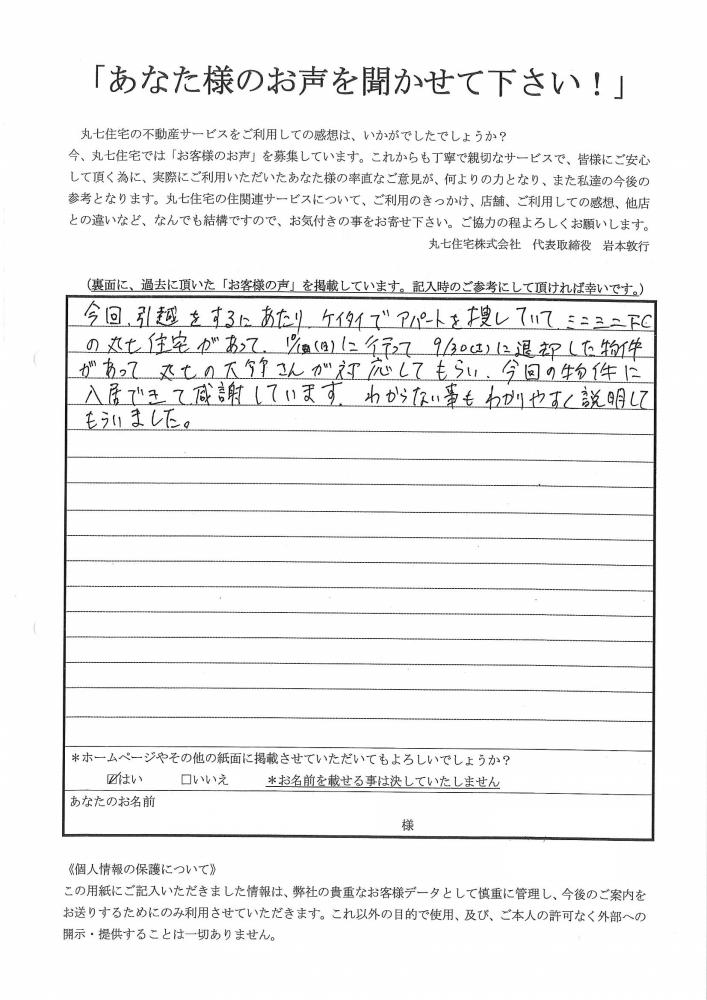 「あなた様のお声を聞かせて下さい！」
丸七住宅の不動産サービスをご利用しての感想は、いかがでしたでしょうか？
今、丸七住宅では「お客様のお声」を募集しています。これからも丁寧で親切なサービスで、皆様にご安心
して頂く為に、実際にご利用いただいたあなた様の率直なご意見が、何よりの力となり、また私達の今後の
参考となります。丸七住宅の住関連サービスについて、ご利用のきっかけ、店舗、ご利用しての感想、他店
との違いなど、なんでも結構ですので、お気付きの事をお寄せ下さい。ご協力の程よろしくお願いします。
丸七住宅株式会社　代表取締役　岩本敦行
（裏面に、過去に頂いた「お客様の声」を掲載しています。記入時のご参考にして頂ければ幸いです。）
今回、引越をするにあたり、ケイタイでアパートを捜していて、ミニミニFC
の丸七住宅があって、10/(日)に行って 9/30(土)に退却した物件
があって 丸七の大竹さんが対応してもらい、今回の物件に
入居できて感謝しています。わからない事もわかりやすく説明して
もらいました。
＊ホームページやその他の紙面に掲載させていただいてもよろしいでしょうか？
☑はい　□いいえ　＊お名前を載せる事は決していたしません
あなたのお名前
様
《個人情報の保護について》
この用紙にご記入いただきました情報は、弊社の貴重なお客様データとして慎重に管理し、今後のご案内を
お送りするためにのみ利用させていただきます。これ以外の目的で使用、及び、ご本人の許可なく外部への
開示・提供することは一切ありません。